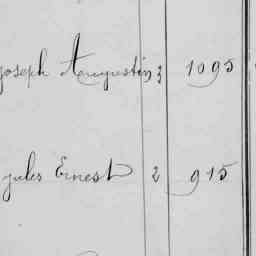 Joseph Augustin 3 1095
Jules Ernest 2 915